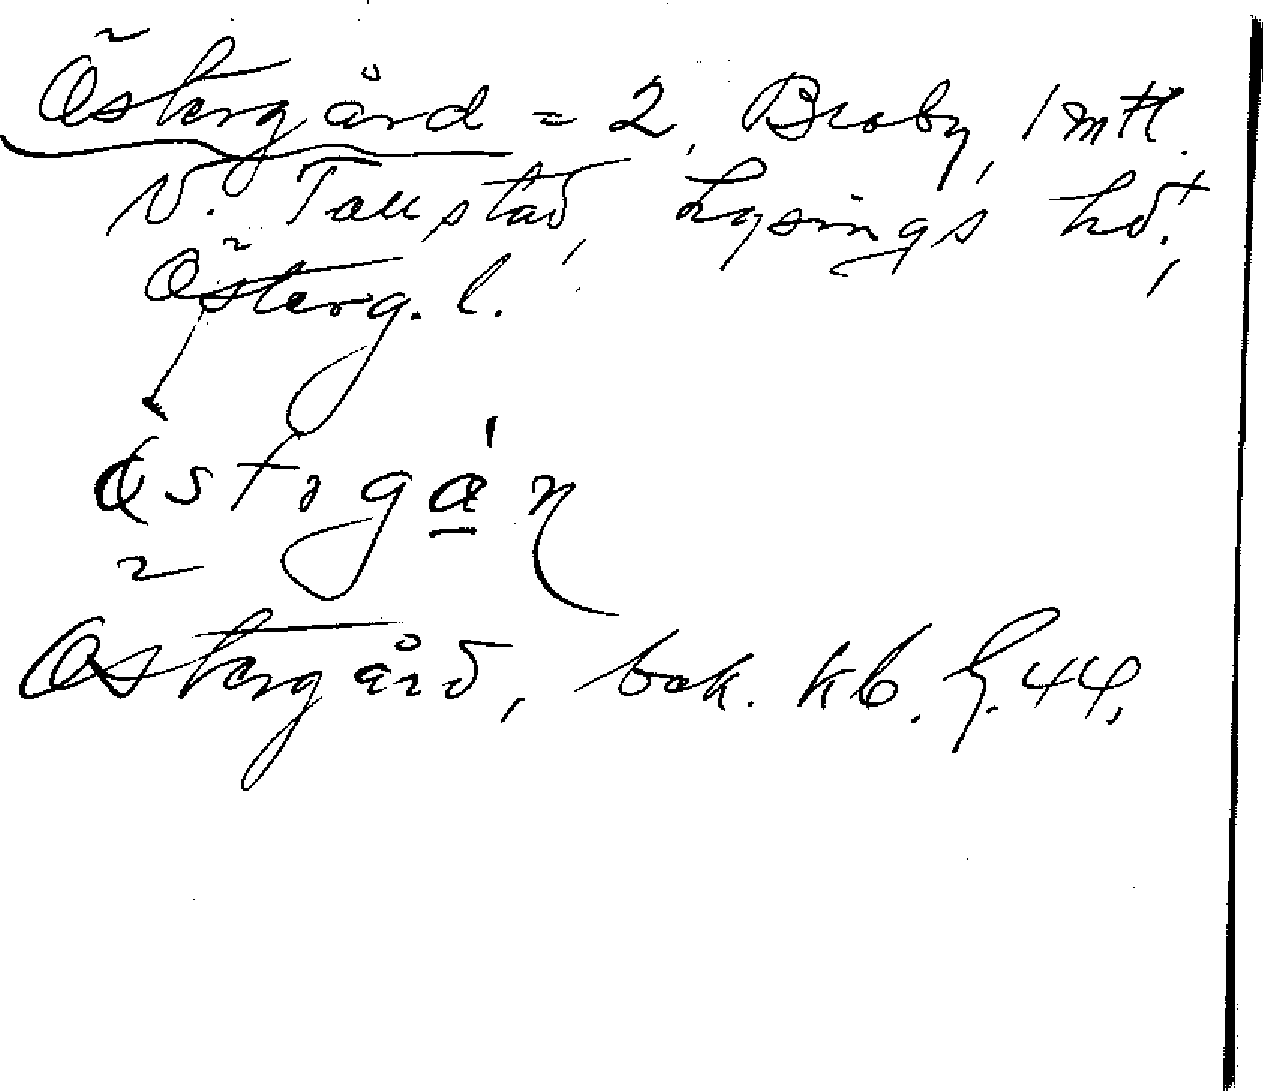 Östergård = 2, Broby, 1 mtl.
V. Tollstad, Lysings hd.,
Österg. l.
Östergård, bok. kb. h. 44.